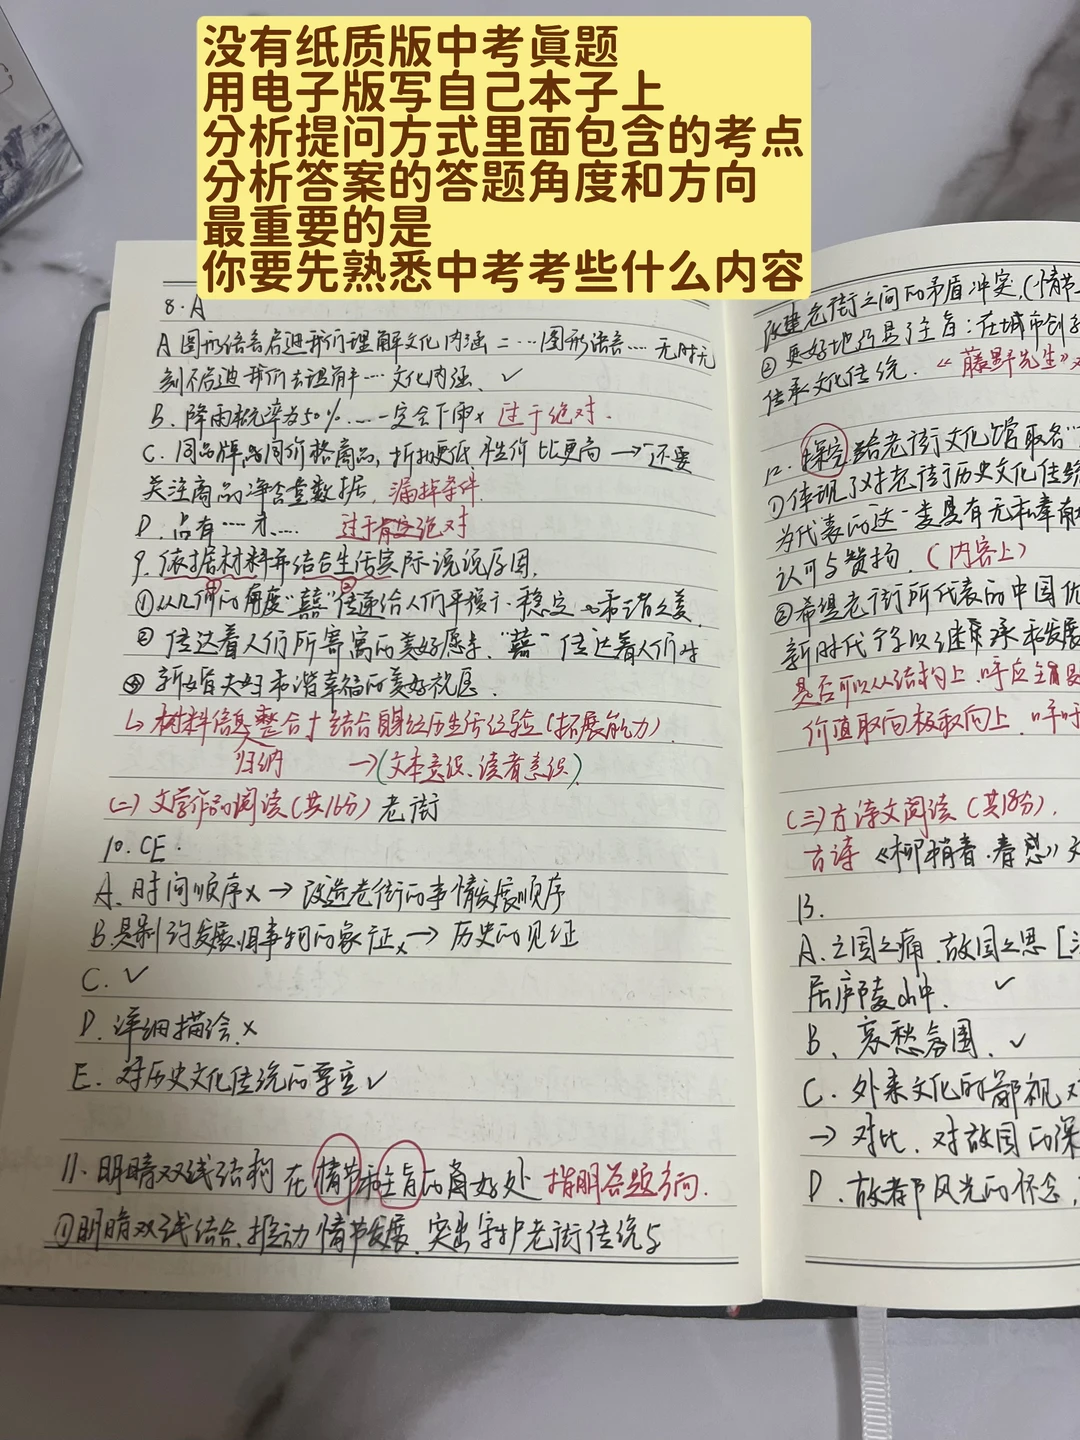 没有纸质版中考真题
用电子版写自己本子上
分析提问方式里面包含的考点
分析答案的答题角度和方向
最重要的是
你要先熟悉中考考些什么内容
8.A
A 图形语言启迪我们理解文化内涵 = …图形语言…. 无时无
刻不启迪我们去理解….文化内涵. ✓
B. 降雨概率为50%. …一定会下雨× 过于绝对.
C. 同品牌,同价格商品, 折扣更低, 性价比更高 → 还要
关注商品净含量数据, 漏掉条件.
D. 占有….才…. 过于肯定绝对
9. 依据材料并结合生活实际说说原因.
① 从几何的角度"囍"传递给人们平稳、稳定、和谐之美.
② 传达着人们所寄寓的美好愿.."囍"传达着人们对
新婚夫妇和谐幸福的美好祝愿.
↳ 材料信息整合+结合自身经历生活经验(拓展能力)
归纳 →(文本意识、读者意识)
(二) 文学作品阅读(共16分) 老街
10. CE.
A. 时间顺序× → 改造老街的事情发展顺序
B. 是制约发展旧事物的象征× → 历史的见证
C. ✓
D. 详细描绘.×
E. 对历史文化传统的尊重✓
11. 明暗双线结构 在情节和主旨的角好处 指明答题方向.
① 明暗双线结合、推动情节发展. 突出守护老街传统与
改建老街之间的矛盾冲突.(情节
② 更好地凸显了主旨:在城市创
传承文化传统. 《藤野先生》
12. 探究 给老街文化馆取名"
① 体现了对老街历史文化传
为代表的这一类具有无私奉献
认可与赞扬. (内容上)
② 希望老街所代表的中国优
新时代守以继承和发展
是否可以从结构上.呼应主旨
价值取向极取向上.
(三) 古诗文阅读(共18分).
古诗 《柳梢青·春感》
13.
A. 亡国之痛. 故国之思
居庐陵山中. ✓
B. 哀愁氛围. ✓
C. 外来文化的鄙视
→ 对比. 对故国的深
D. 故都风光的怀念,